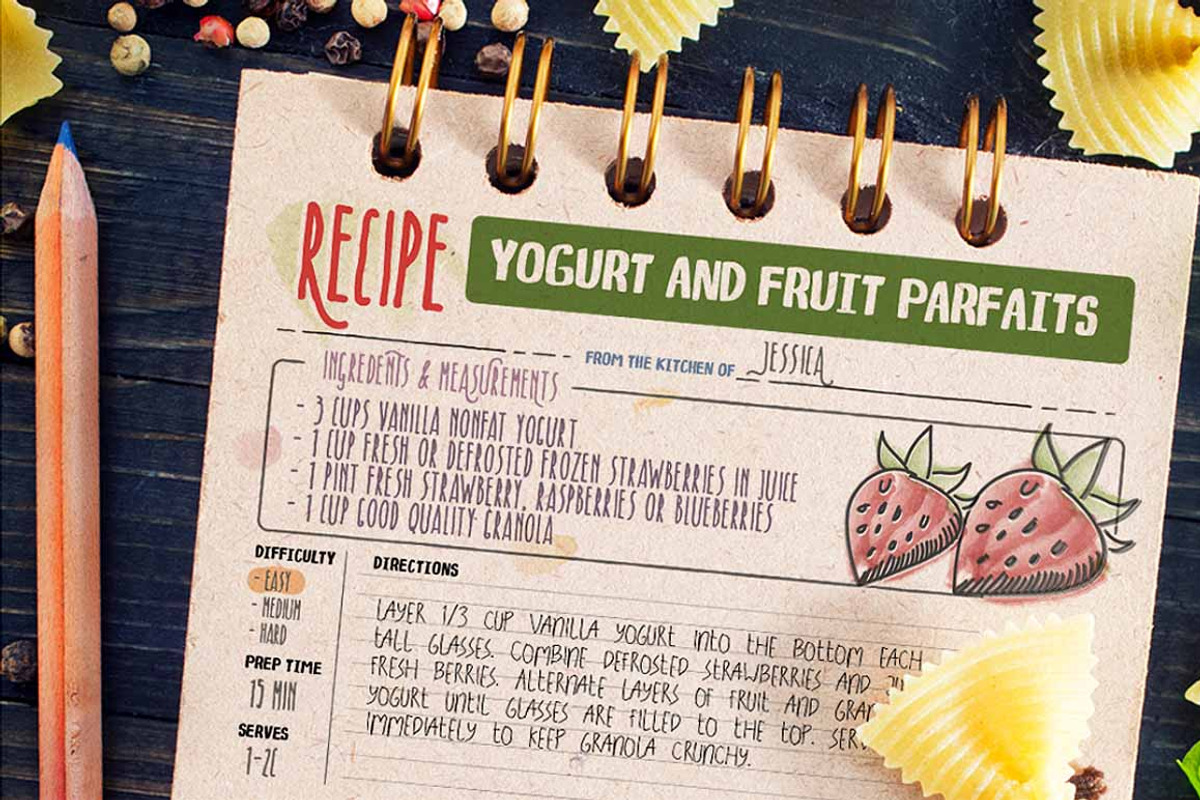 RECIPE
YOGURT AND FRUIT PARFAITS
FROM THE KITCHEN OF JESSICA
INGREDENTS & MEASUREMENTS
- 3 CUPS VANILLA NONFAT YOGURT
- 1 CUP FRESH OR DEFROSTED FROZEN STRAWBERRIES IN JUICE
- 1 PINT FRESH STRAWBERRY, RASPBERRIES OR BLUEBERRIES
- 1 CUP GOOD QUALITY GRANOLA
DIFFICULTY
- EASY
- MEDIUM
- HARD
PREP TIME
15 MIN
SERVES
DIRECTIONS
LAYER 1/3 CUP VANILLA YOGURT INTO THE BOTTOM EACH
TALL GLASSES. COMBINE DEFROSTED STRAWBERRIES AND
FRESH BERRIES. ALTERNATE LAYERS OF FRUIT AND
YOGURT UNTIL GLASSES ARE FILLED TO THE TOP.
IMMEDIATELY TO KEEP GRANOLA CRUNCHY.